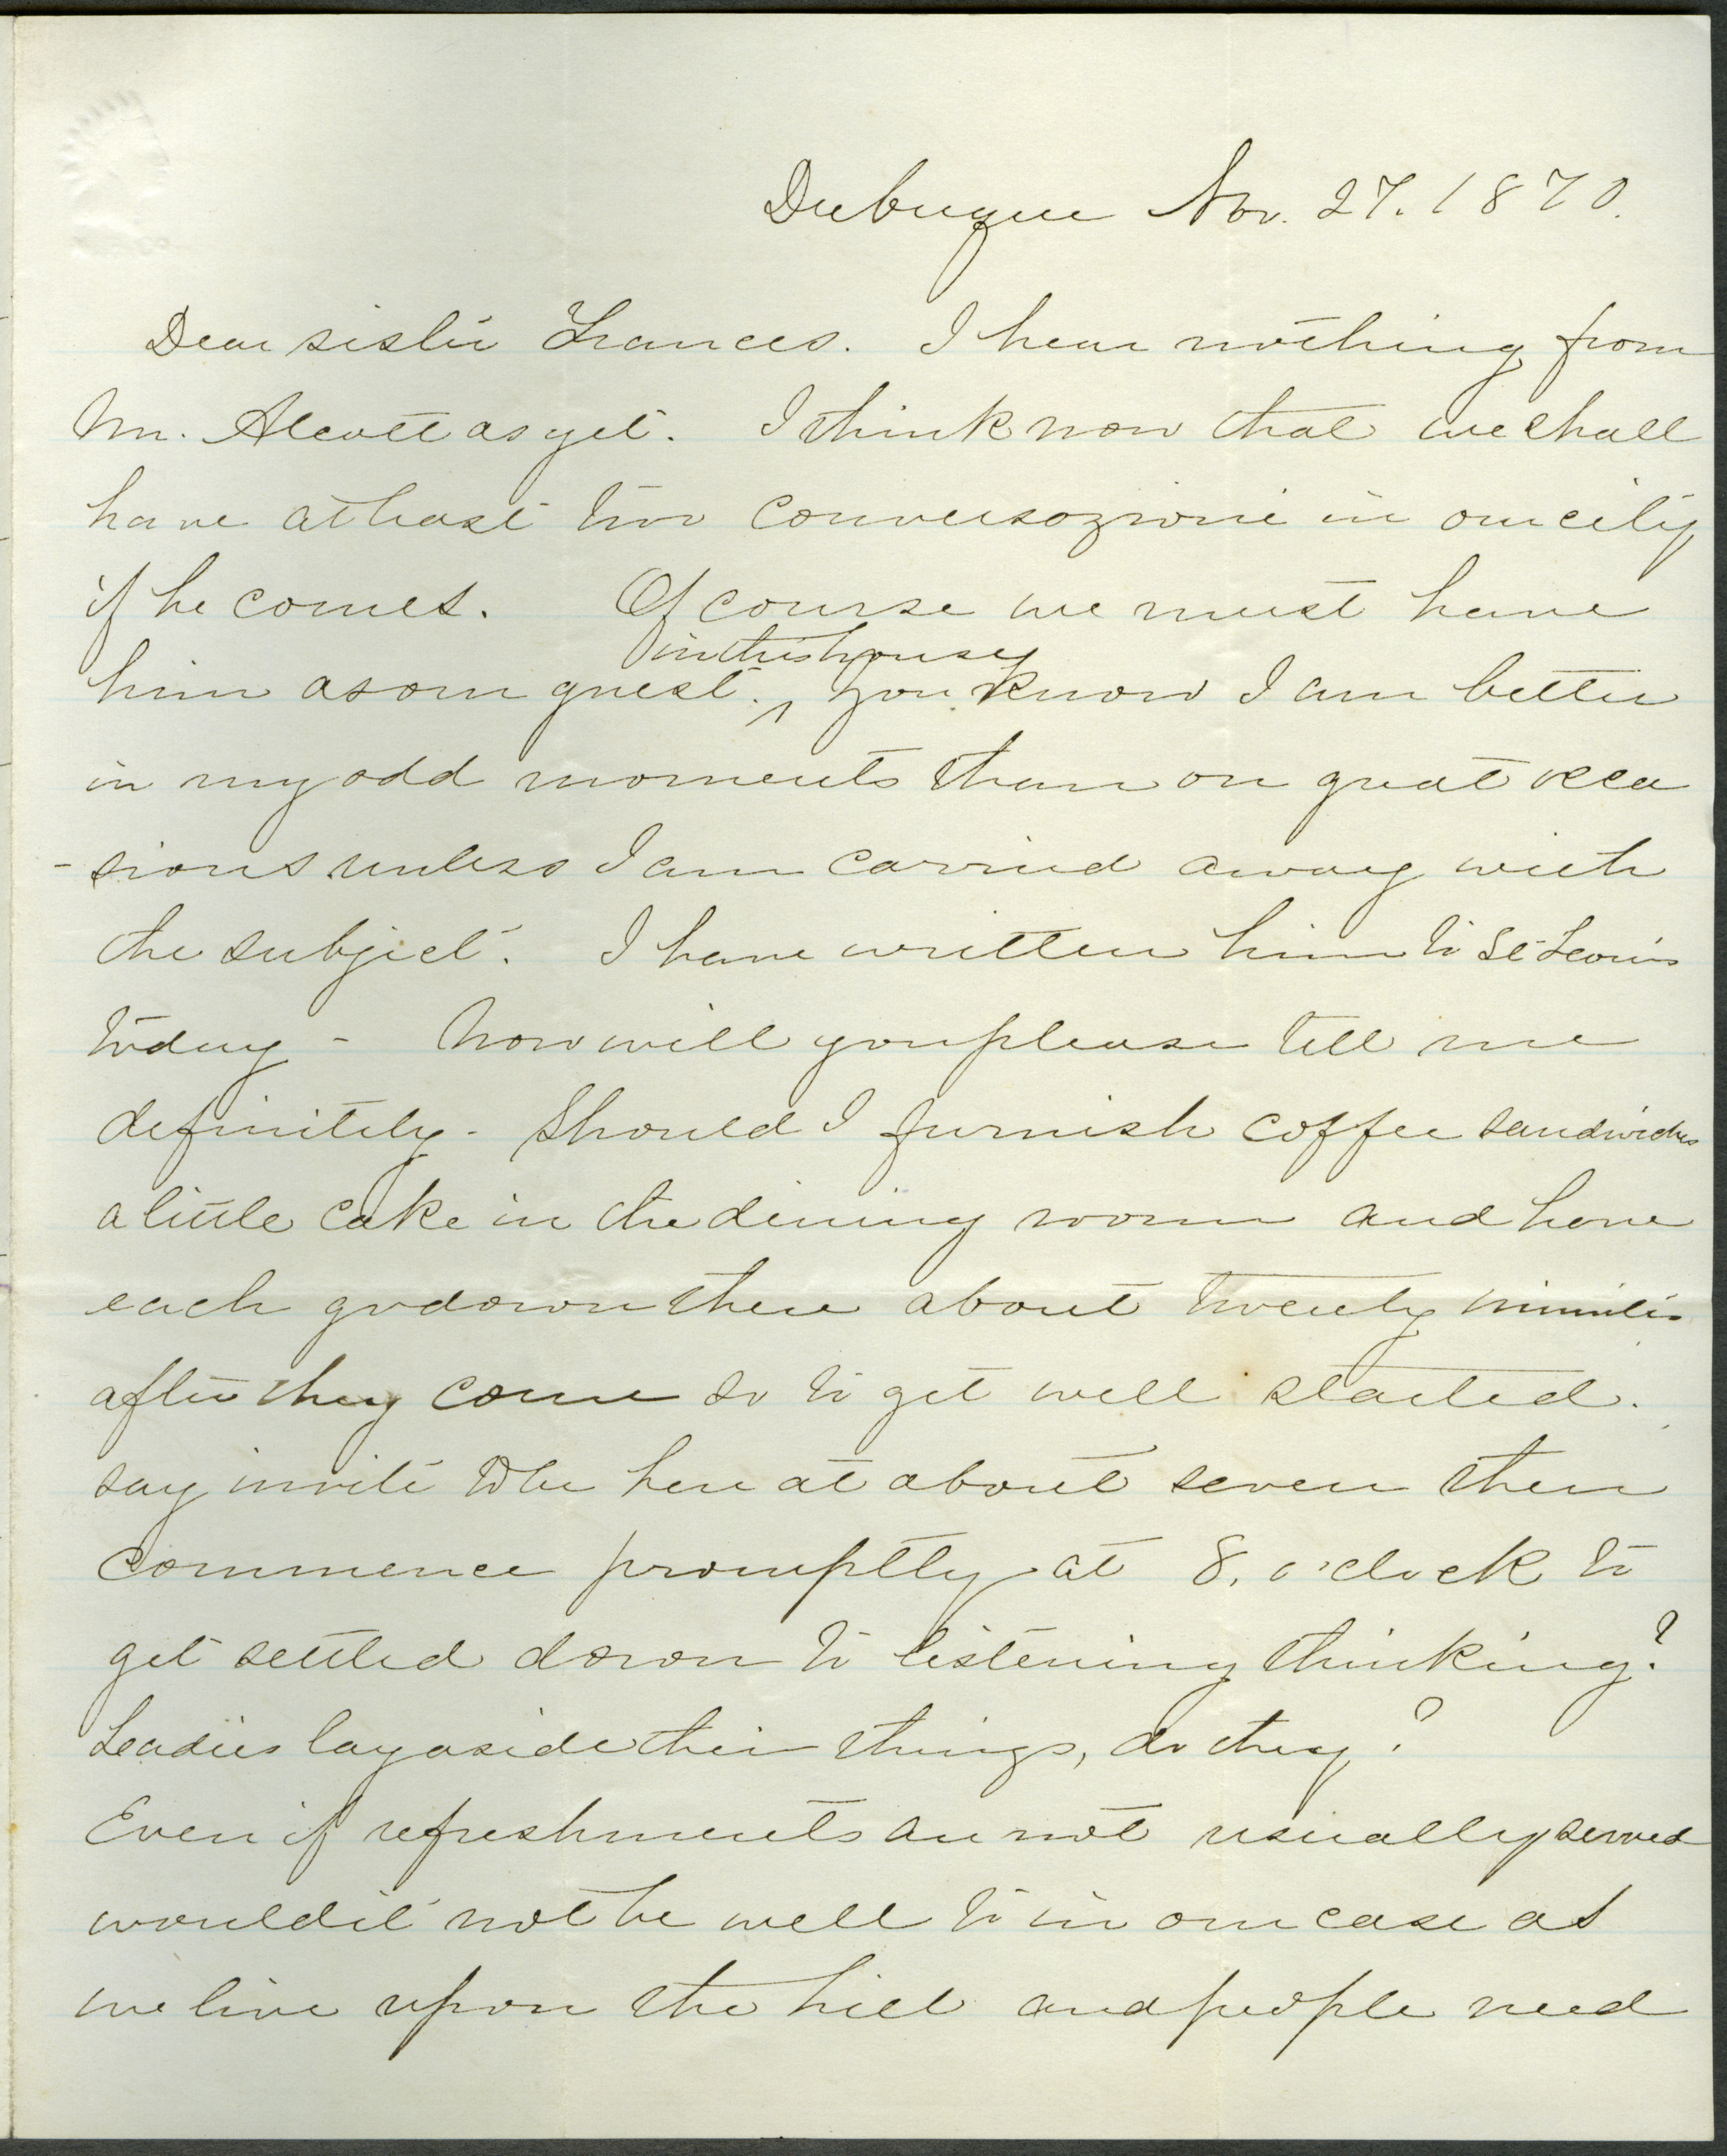 Dubuque Nov. 27. 1870.
Dear sister Frances. I hear nothing from
Mr. Alcott as yet. I think now that we shall
have at least two conversazioni in our city
if he comes. Of course we must have
in this house
him as our guest. ^ You know I am better
in my odd moments than on great occa
-sions unless I am carried away with
the subject. I have written him to St Louis
today - Now will you please tell me
definitely - Should I furnish coffee sandwiches
a little cake in the dining room and have
each go down there about twenty minutes
after they come so to get well started.
say invite to be here at about seven then
commence promptly at 8, o'clock to
get settled down to listening thinking?
Ladies lay aside their things, do they?
Even if refreshments are not usually served
would it not be well to in our case as
we live upon the hill and people need